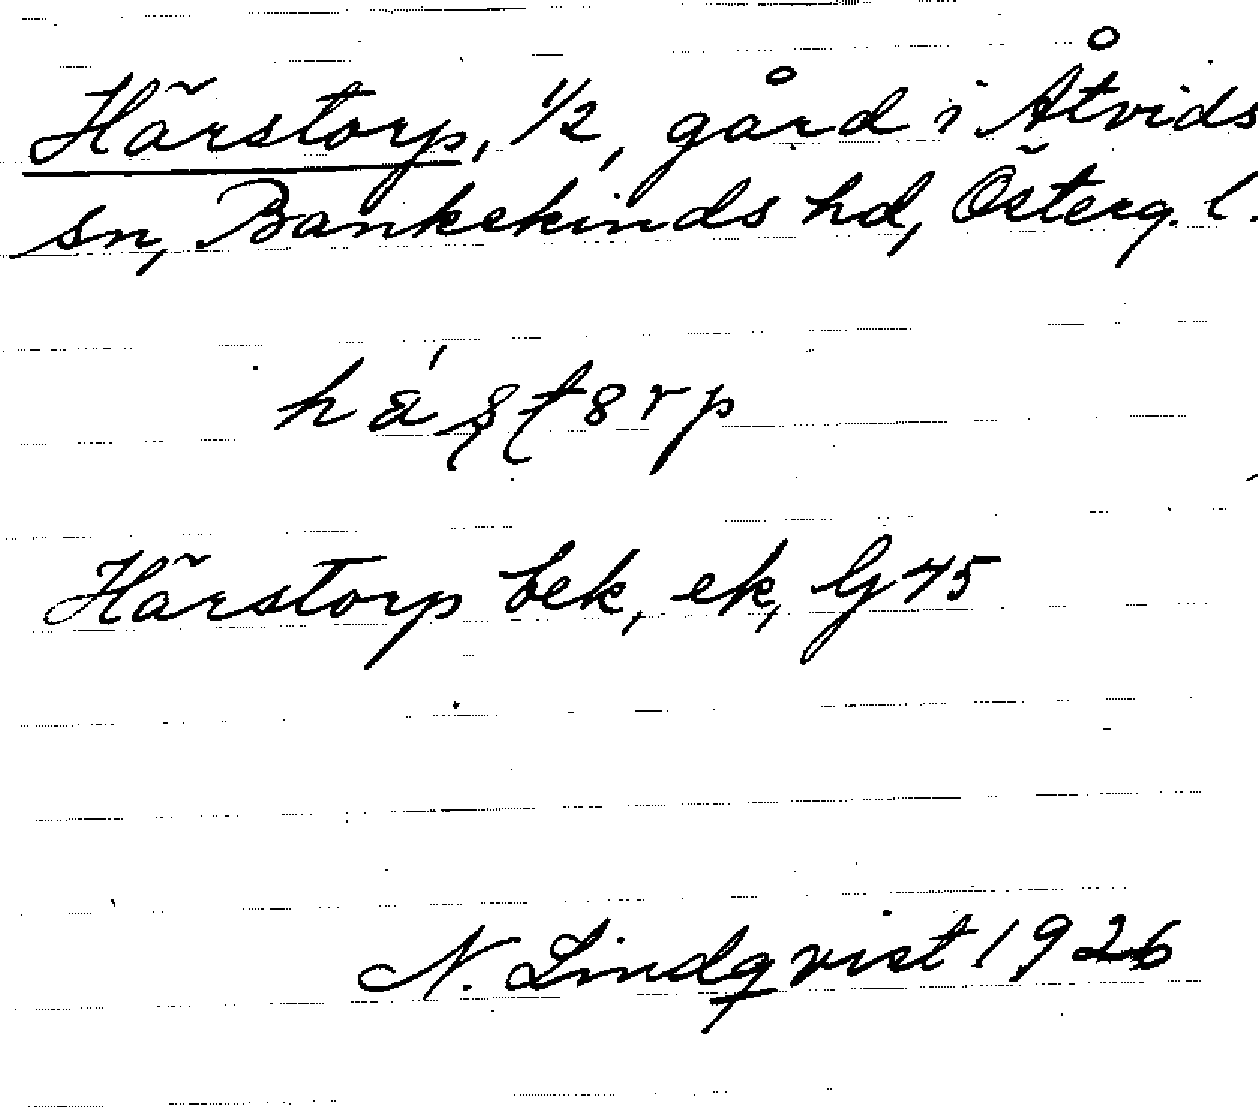 Härstorp, 1/2, gård i Åtvids
sn, Bankekinds hd, Österg. l.
Härstorp bek, ek, Gj 45
N. Lindqvist 1926